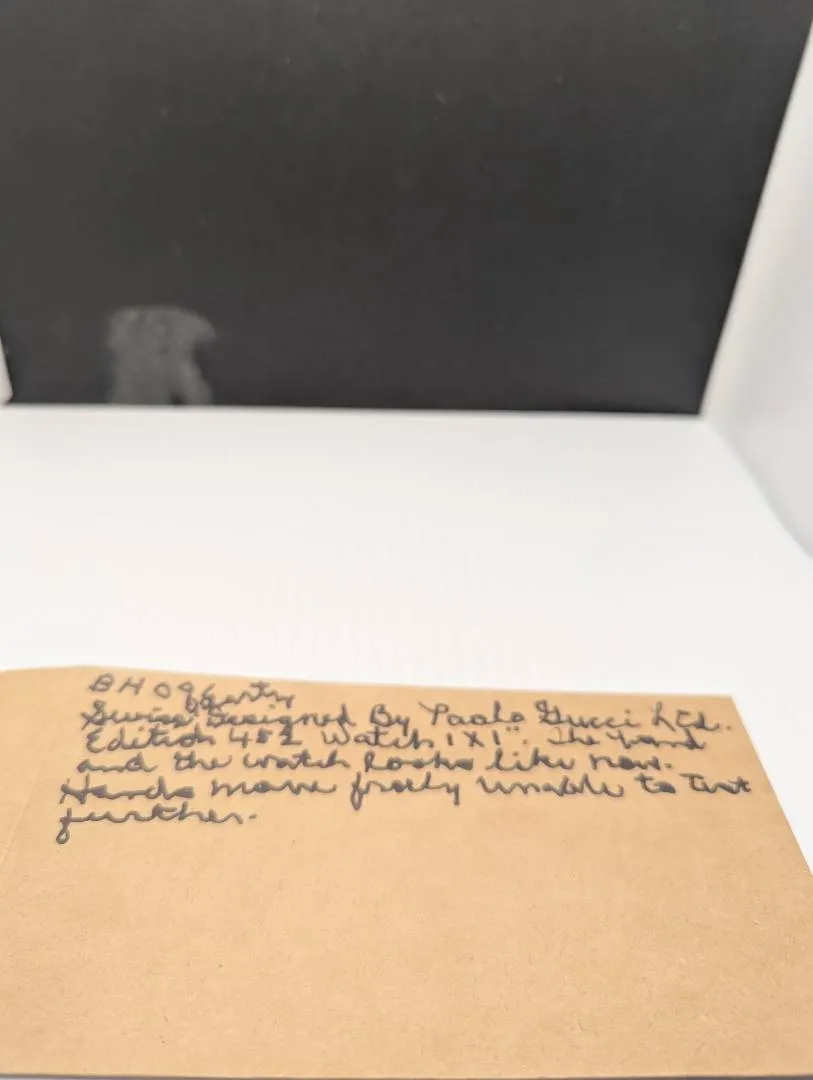 BH
Swiss Designed By Paolo Gucci Ltd.
Edition 452 Watch 1X1". The band
and the watch looks like new.
Hands move freely unable to Test
further.